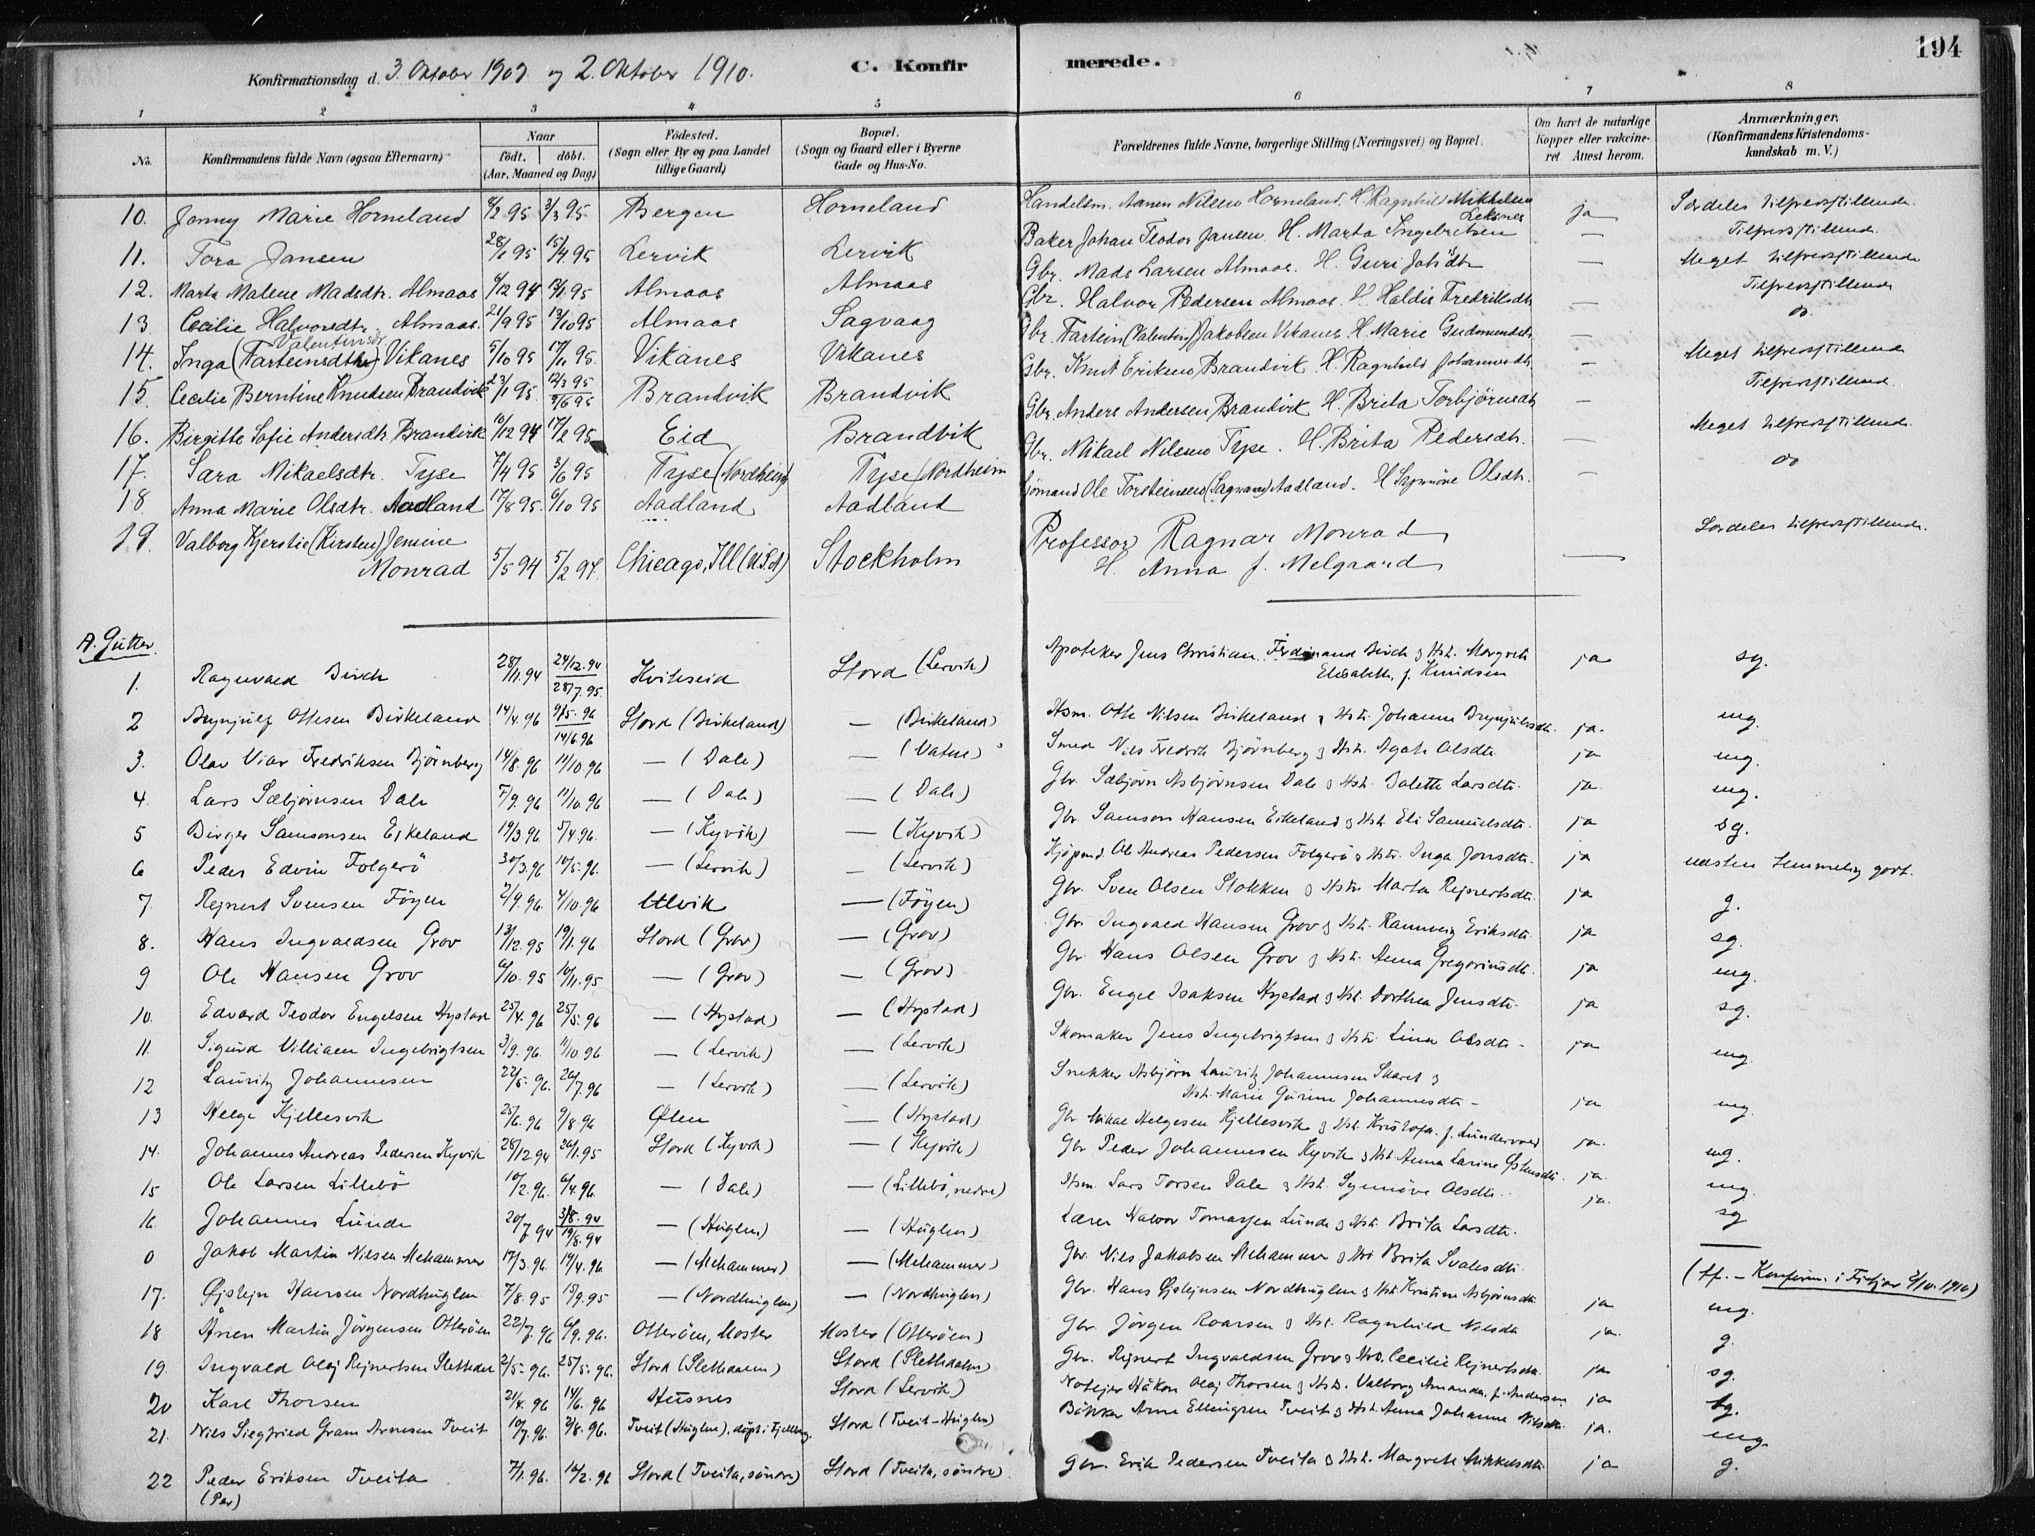 194
Konfirmationsdag d. 3. Oktober 1909 og 2. Oktober 1910. C. Konfirmerede.
1 2 3 4 5 6 7 8
No. Konfirmandens fulde Navn (ogsaa Efternavn) Naar født. døbt. (Aar, Maaned og Dag) Fødested. (Sogn eller By og paa Landet tillige Gaard) Bopæl. (Sogn og Gaard eller i Byerne Gade og Hus-No. Forældrenes fulde Navne, borgerlige Stilling (Næringsvei) og Bopæl. Om havt de naturlige Kopper eller vakcineret. Attest herom. Anmærkninger. (Konfirmandens Kristendomskundskab m. V.)
10. Jenny Marie Horneland 8/2 95 3/3 95 Bergen Horneland Handelsm. Aanen Nilsen Horneland. H. Ragnhild Mikkelsen Leknes ja Særdeles tilfredsstillende
11. Tora Jansen 28/1 95 15/4 95 Lervik Lervik Baker Johan Teodor Jansen. H. Marta Ingebritsen — Tilfredsstillende.
12. Marta Malene Madsdtr. Almaas 6/12 94 13/1 95 Almaas Almaas Gbr. Mads Larsen Almaas. H. Guri Joh'dtr — Meget tilfredsstillende
13. Cecilie Halvorsdtr. Almaas. 21/9 95 13/10 95 Almaas Sagvaag Gbr. Halvor Pedersen Almaas. H. Haldis Fredriksdtr — Tilfredsstillende
14. Inga (Farteinsdtr) Valentinsdr Vikanes 5/10 95 17/11 95. Vikanes Vikanes Gbr. Fartein (Valentin) Jakobsen Vikanes H. Marie Gudmundsdtr — do
15. Cecilie Berntine Knudsen Brandvik 23/1 95. 12/3 95 3/6 95 Brandvik Brandvik Gbr. Knut Eriksen Brandvik H. Ragnhild Johannesdtr — Meget tilfredsstillende
16. Birgitte Sofie Andersdtr. Brandvik 10/12 94 17/2 95 Eid Brandvik Gbr. Anders Andersen Brandvik H. Brita Torbjørnsdtr — Tilfredsstillende.
17. Sara Mikaelsdtr. Tyse 7/4 95 3/6 95 Tyse (Nordheim) Tyse (Nordheim Gbr. Mikael Nilsen Tyse. H. Brita Pedersdtr. — Meget tilfredsstillende.
18 Anna Marie Olsdtr. Aadland 17/8 95. 6/10 95 Aadland Aadland Sjømand Ole Torsteinsen (Sagvaag) Aadland. H Synnøve Olsdtr. — do
19. Valborg Kjerstie (Kirsten) Jensine Monrad 5/5 94 5/2 97. Chicago, Ill (U.S.A) Stockholm Professor Ragnar Monrad H. Anna f. Melgaard — Særdeles tilfredsstillende.
A. Gutter.
1. Ragnvald Birch 28/11.94 24/12.94 28/7.95 Hvitseid Stord (Lervik) Apoteker Jens Christian Ferdinand Birch & Hst. Margrete Elisabeth, f. Knudsen ja sg.
2 Brynjulf Ottesen Birkeland 14/4.96 9/5.96 14/6.96 Stord (Birkeland) — (Birkeland) Hsm. Otte Nilsen Birkeland & Hst. Johanna Brynjulvsdtr. ja. mg.
3. Olav Viar Fredriksen Bjørnberg 14/8.96 11/10.96 — (Dale) — (Vatne) Smed Nils Fredrik Bjørnberg & Hst. Agate Olsdtr ja mg.
4. Lars Sæbjørnsen Dale 7/9.96 11/10.96 — (Dale) — (Dale) Gbr. Sæbjørn Asbjørnsen Dale & Hst. Valette Larsdtr. ja. mg.
5 Birger Samsonsen Eikeland 19/3.96 5/4.96. — (Kyvik) — (Kyvik) Gbr. Samson Hansen Eikeland & Hst. Eli Samuelsdtr. ja sg.
6 Peder Edvin Folgerö 30/3.96 10/5.96. — (Lervik) — (Lervik) Kjöpmd. Ole Andreas Pedersen Folgerö & Hst. Inga Jonsdtr. ja næsten temmelig godt.
7. Rejnert Svensen Föyen 2/9.96. 4/10.96 Ulvik — (Föyen) Gbr. Sven Olsen Stokken & Hst. Marta Rejnertsdtr. ja g.
8. Hans Ingvaldsen Grov 13/12.95 19/1.96 Stord (Grov) — (Grov) Gbr. Ingvald Hansen Grov & Hst. Rannveig Eriksdtr. ja sg.
9 Ole Hansen Grov 6/10.95 10/11.95 — (Grov) — (Grov) Gbr. Hans Olsen Grov & Hst. Anna Gregoriusdtr. ja mg.
10. Edvard Teodor Engelsen Hystad 25/4.96 25/5.96 — (Hystad) — (Hystad) Gbr. Engel Isaksen Hystad & Hst. Dorthea Jensdtr. ja sg.
11. Sigurd Villiam Ingebrigtsen 3/9.96. 11/10.96 — (Lervik) — (Lervik) Skomaker Jens Ingebrigtsen & Hst. Lina Olsdtr. ja mg.
12 Lauritz Johannesen 22/5.96. 26/7.96 — (Lervik) — (Lervik) Snekker Asbjørn Lauritz Johannesen Skaret & Hst. Marie Gurine Johannesdtr. ja mg.
13 Helge Kjellesvik 25/6.96 9/8.96 Ølen — (Hystad) Gbr Mikal Helgesen Kjellesvik & Hst. Kristofa. f. Lundervold ja. mg.
14. Johannes Andreas Pedersen Kyvik 28/12.94 26/1.95 Stord (Kyvik) — (Kyvik) Gbr Peder Johannesen Kyvik & Hst. Anna Larine Østensdtr. ja. mg.
15 Ole Larsen Lillebö 10/2.96. 6/4.96. — (Dale) — (Lillebö, nedre) Hsm. Lars Torsen Dale & Hst. Synnöve Olsdtr. ja. sg
16. Johannes Lunde 20/7.94 3/8.94 19/8.94 — (Huglen) — (Huglen) Lærer Halvor Tomassen Lunde & Hst. Brita Larsdtr. —
0 Jakob Martin Nilsen Mehammer 17/3.96. 19/4.96. — (Mehammer) — (Mehammer) Gbr. Nils Jakobsen Mehammer & Hst. Brita Svalesdtr. (ff. – Konfirm. i Fitjar 9/10.1910)
17. Øjstejn Hansen Nordhuglen 7/8.95 15/9.95 — (Nordhuglen) — (Nordhuglen) Gbr. Hans Øjstejnsen Nordhuglen & Hst. Kristine Asbjørnsdtr. ja mg.
18 Ånen Martin Jörgensen Otteröen 22/7.96 6/9.96. Otteröen, Moster Moster (Otteröen) Gbr. Jörgen Roarsen & Hst. Ragnhild Nilsdtr ja. g.
19. Ingvald Olaj Rejnertsen Sletthdalen 2/5.96. 25/5.96. Stord (Slethdalen) Stord (Slethdalen) Gbr. Rejnert Ingvaldsen Grov & Hst. Cecilie Rejnertsdtr. ja sg.
20 Karl Thorsen 21/4.96 14/6.96 Husnes Stord (Lervik) Notejer Håkon Olaj Thorsen & Hst. Valborg Amanda, f. Andersen ja tg.
21. Nils Siegfried Gram Arnesen Tveit 10/7.96. 2/8.96. Tveit (Huglen), döpt i Fjellberg. Stord (Tveit–Huglen) Bökker Arne Ellingsen Tveit & Hst. Anna Johanne Nilsdtr. ja. mg.
22 Peder Eriksen Tveita 7/1.96. 16/2.96 Stord (Tveita, söndre) Stord (Tveita, söndre). Gbr. Erik Pedersen Tveita & Hst. Margrete Mikkelsdtr. ja g.
(Per)